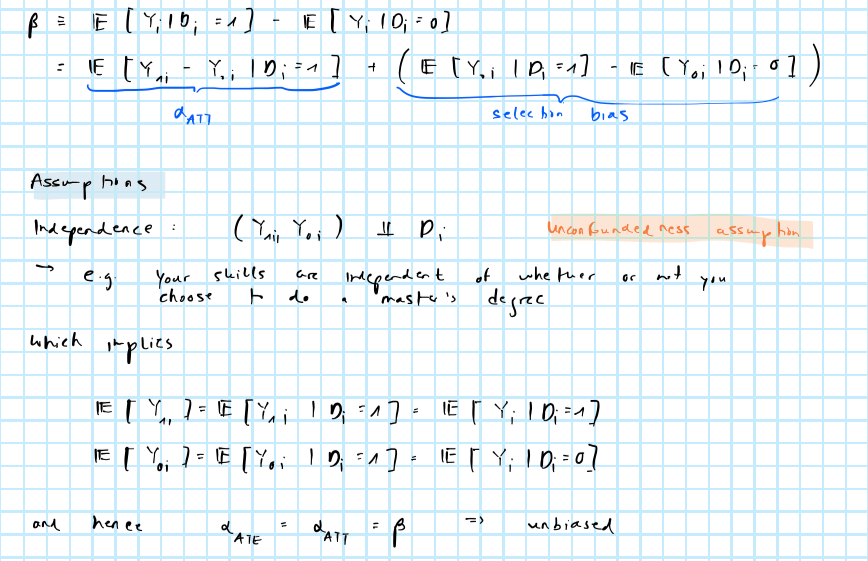 β ≡ 𝔼 [ Y_i | D_i = 1 ] - 𝔼 [ Y_i | D_i = 0 ]
= 𝔼 [ Y_1i - Y_0i | D_i = 1 ] + ( 𝔼 [ Y_0i | D_i = 1 ] - 𝔼 [ Y_0i | D_i = 0 ] )
α_ATT selection bias
Assumptions
Independence : ( Y_1i, Y_0i ) ⫫ D_i unconfundedness assumption
→ e.g. your skills are independent of whether or not you
choose to do a master's degree
which implies
𝔼 [ Y_1i ] = 𝔼 [ Y_1i | D_i = 1 ] = 𝔼 [ Y_i | D_i = 1 ]
𝔼 [ Y_0i ] = 𝔼 [ Y_0i | D_i = 1 ] = 𝔼 [ Y_i | D_i = 0 ]
and hence α_ATE = α_ATT = β => unbiased